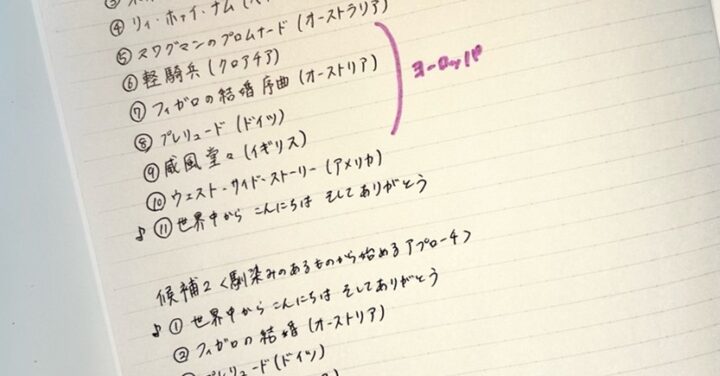 ④ リィ・ホァイ・ナム (
⑤ スワグマンのプロムナード (オーストラリア)
⑥ 軽騎兵 (クロアチア)
⑦ フィガロの結婚 序曲 (オーストリア)
⑧ プレリュード (ドイツ)
⑨ 威風堂々 (イギリス)
ヨーロッパ
⑩ ウェスト・サイド・ストーリー (アメリカ)
♪ ⑪ 世界中から こんにちは そして ありがとう
候補2 <馴染みのあるものから始めるアプローチ>
♪ ① 世界中から こんにちは そして ありがとう
② フィガロの結婚 (オーストリア)
プレリュード (ドイツ)